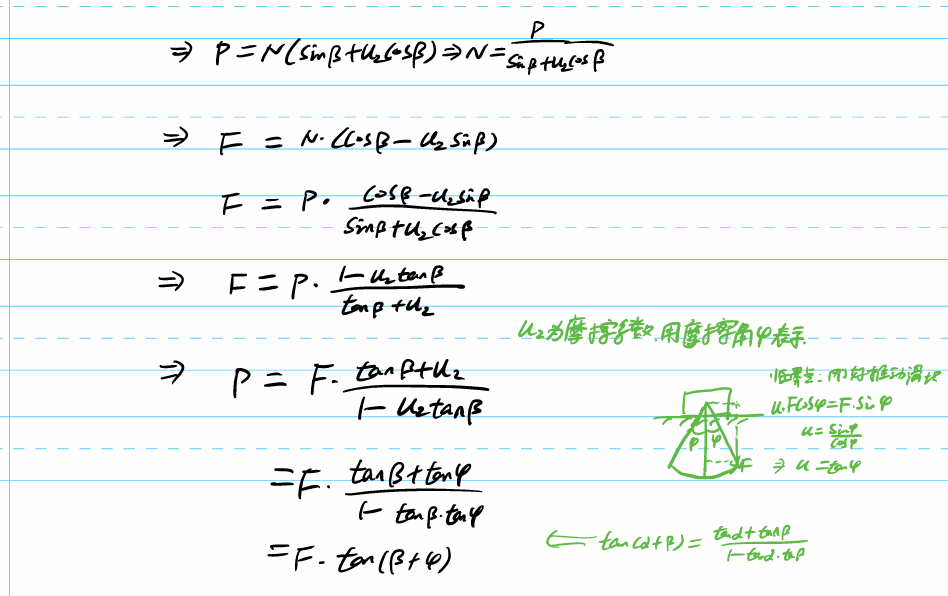 ⇒ P = N(sinβ+u₂cosβ) ⇒ N = P / (sinβ+u₂cosβ)
⇒ F = N·(cosβ − u₂sinβ)
F = P· (cosβ − u₂sinβ) / (sinβ+u₂cosβ)
⇒ F = P· (1 − u₂tanβ) / (tanβ+u₂)
u₂为摩擦系数.用摩擦角φ表示.
⇒ P = F· (tanβ+u₂) / (1 − u₂tanβ)
临界点:刚好推动滑块
u.Fcosφ=F.sinφ
u = sinφ / cosφ
⇒ u = tanφ
φ φ
F
= F· (tanβ+tanφ) / (1 − tanβ·tanφ)
= F· tan(β+φ)
← tan(α+β) = (tanα+tanβ) / (1−tanα·tanβ)